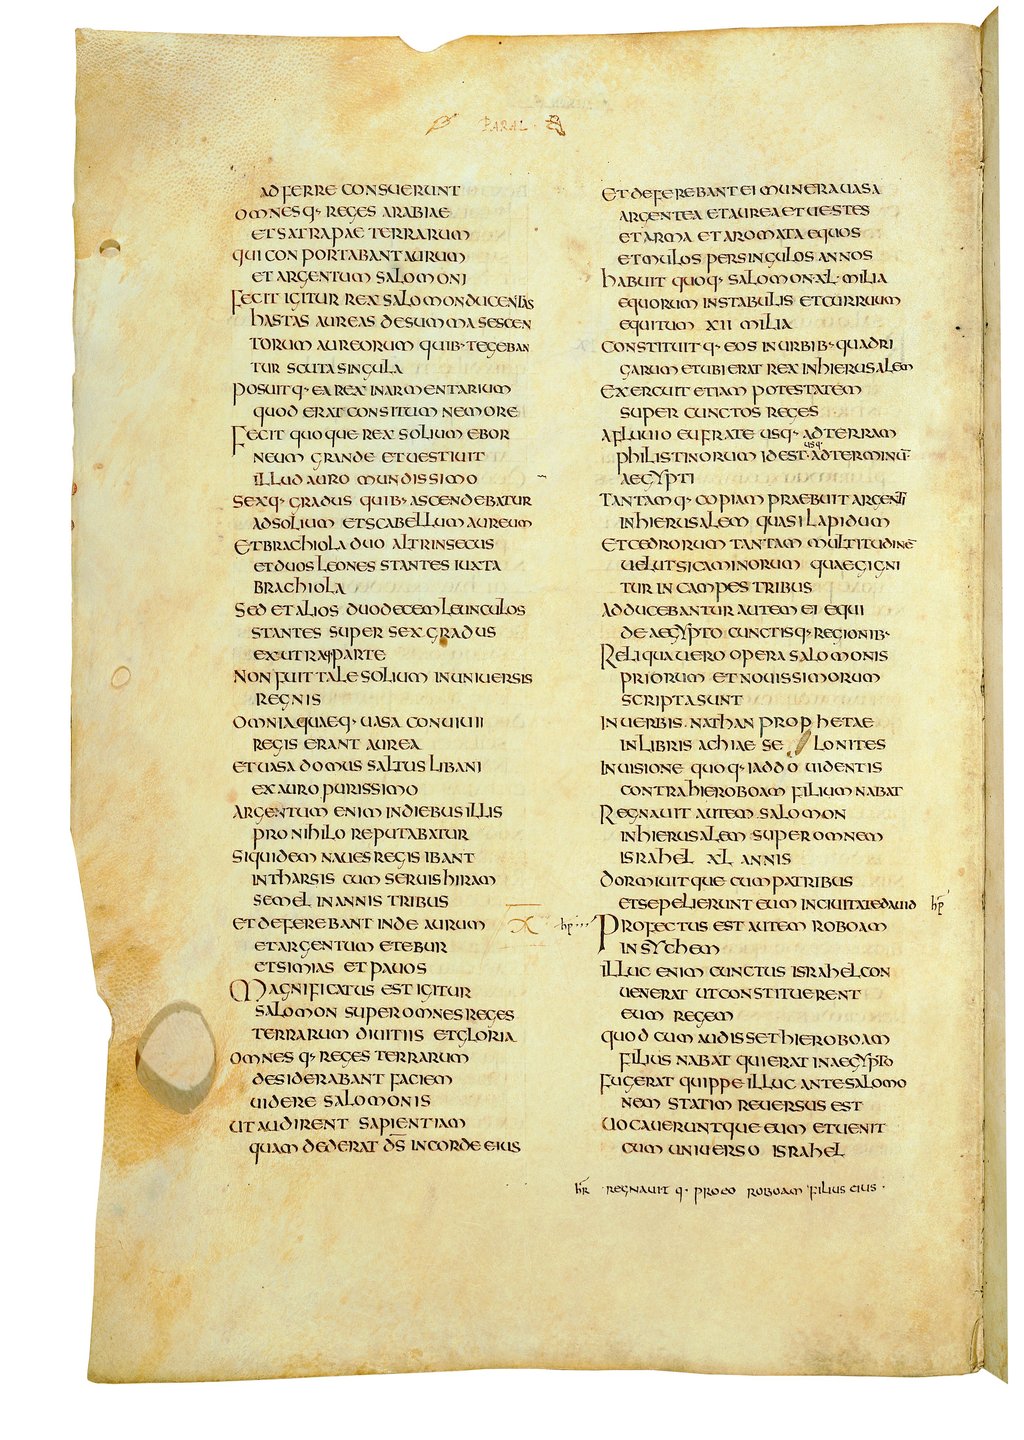 PARAL
AD FERRE CONSUERUNT
OMNESQ· REGES ARABIAE
ET SATRAPAE TERRARUM
QUI CONPORTABANT AURUM
ET ARGENTUM SALOMONI
FECIT IGITUR REX SALOMON DUCENTAS
HASTAS AUREAS DE SUMMA SESCEN
TORUM AUREORUM QUIB· TEGEBAN
TUR SCUTA SINGULA
POSUITQ· EA REX IN ARMENTARIUM
QUOD ERAT CONSITUM NEMORE
FECIT QUOQUE REX SOLIUM EBOR
NEUM GRANDE ET UESTIUIT
ILLUD AURO MUNDISSIMO
SEXQ· GRADUS QUIB· ASCENDEBATUR
AD SOLIUM ET SCABELLUM AUREUM
ET BRACHIOLA DUO ALTRINSECUS
ET DUOS LEONES STANTES IUXTA
BRACHIOLA
SED ET ALIOS DUODECEM LEUNCULOS
STANTES SUPER SEX GRADUS
EX UTRAQ· PARTE
NON FUIT TALE SOLIUM IN UNIUERSIS
REGNIS
OMNIAQUAEQ· UASA CONUIUII
REGIS ERANT AUREA
ET UASA DOMUS SALTUS LIBANI
EX AURO PURISSIMO
ARGENTUM ENIM IN DIEBUS ILLIS
PRO NIHILO REPUTABATUR
SIQUIDEM NAUES REGIS IBANT
IN THARSIS CUM SERUIS HIRAM
SEMEL IN ANNIS TRIBUS
ET DEFEREBANT INDE AURUM
ET ARGENTUM ET EBUR
ET SIMIAS ET PAUOS
MAGNIFICATUS EST IGITUR
SALOMON SUPER OMNES REGES
TERRARUM DIUITIIS ET GLORIA
OMNESQ· REGES TERRARUM
DESIDERABANT FACIEM
UIDERE SALOMONIS
UT AUDIRENT SAPIENTIAM
QUAM DEDERAT D̅S̅ IN CORDE EIUS
ET DEFEREBANT EI MUNERA UASA
ARGENTEA ET AUREA ET UESTES
ET ARMA ET AROMATA EQUOS
ET MULOS PER SINGULOS ANNOS
HABUIT QUOQ· SALOMON ·XL· MILIA
EQUORUM IN STABULIS ET CURRUUM
EQUITUM XII MILIA
CONSTITUITQ· EOS IN URBIB· QUADRI
GARUM ET UBI ERAT REX IN HIERUSALEM
EXERCUIT ETIAM POTESTATEM
SUPER CUNCTOS REGES
A FLUUIO EUFRATE USQ· AD TERRAM
PHILISTINORUM ID EST· usq· AD TERMINU̅
AEGYPTI
TANTAMQ· COPIAM PRAEBUIT ARGENTI
IN HIERUSALEM QUASI LAPIDUM
ET CEDRORUM TANTAM MULTITUDINE̅
UELUT SICAMINORUM QUAE GIGNI
TUR IN CAMPESTRIBUS
ADDUCEBANTUR AUTEM EI EQUI
DE AEGYPTO CUNCTISQ· REGIONIB·
RELIQUA UERO OPERA SALOMONIS
PRIORUM ET NOUISSIMORUM
SCRIPTA SUNT
IN UERBIS NATHAN PROPHETAE
IN LIBRIS ACHIAE SE LONITES
IN UISIONE QUOQ· IADDO UIDENTIS
CONTRA HIEROBOAM FILIUM NABAT
REGNAUIT AUTEM SALOMON
IN HIERUSALEM SUPER OMNEM
ISRAHEL XL ANNIS
DORMIUITQUE CUM PATRIBUS
ET SEPELIERUNT EUM IN CIUITATE DAUID
PROFECTUS EST AUTEM ROBOAM
IN SYCHEM
ILLUC ENIM CUNCTUS ISRAHEL CON
UENERAT UT CONSTITUERENT
EUM REGEM
QUOD CUM AUDISSET HIEROBOAM
FILIUS NABAT QUI ERAT IN AEGYPTO
FUGERAT QUIPPE ILLUC ANTE SALOMO
NEM STATIM REUERSUS EST
UOCAUERUNTQUE EUM ET UENIT
CUM UNIUERSO ISRAHEL
REGNAUIT Q· PRO EO ROBOAM FILIUS EIUS ·